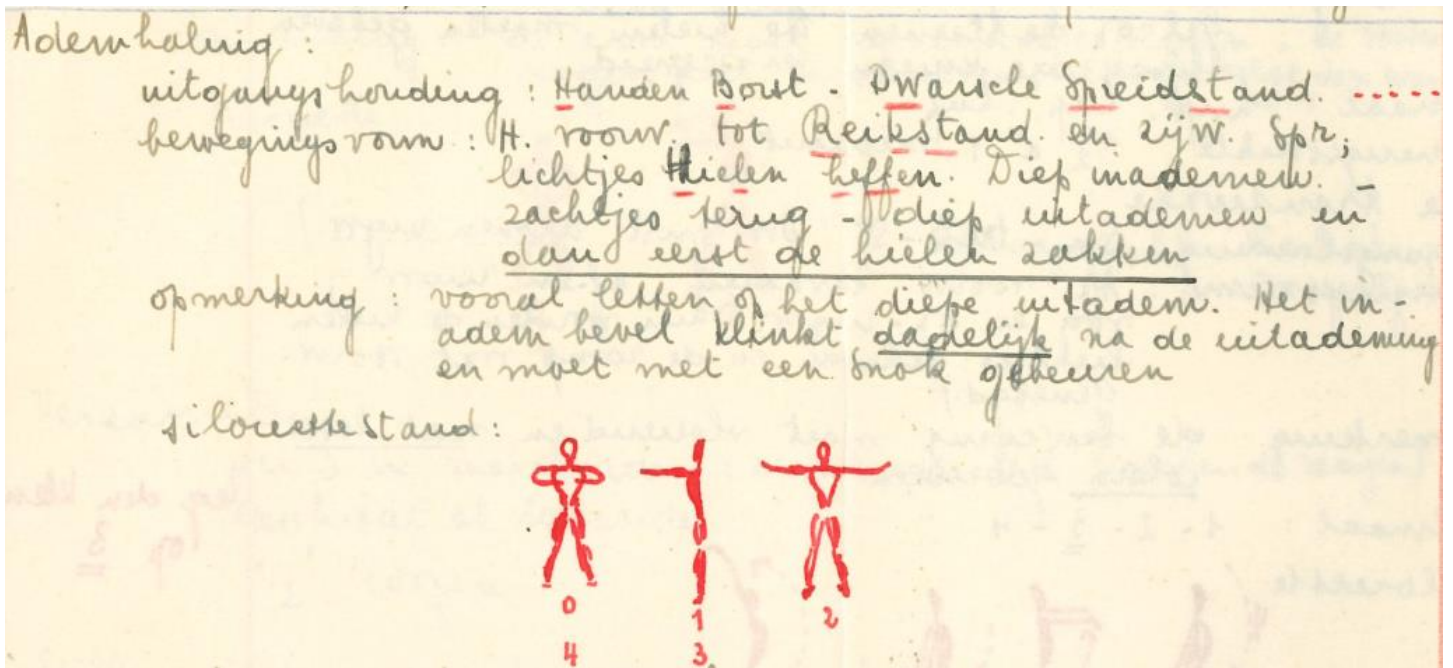 Ademhaling :
uitgangshouding : Handen Borst - Dwarsche Spreidstand. ......
bewegingsvorm : H. voorw. tot Reikstand en zijw. Spr;
lichtjes Hielen heffen. Diep inademen. -
zachtjes terug - diep uitademen en
dan eerst de hielen zakken
opmerking : vooral letten op het diepe uitadem. Het in-
adem bevel klinkt dadelijk na de uitademing
en moet met een snok gebeuren
silouettestand :
0 1 2
4 3